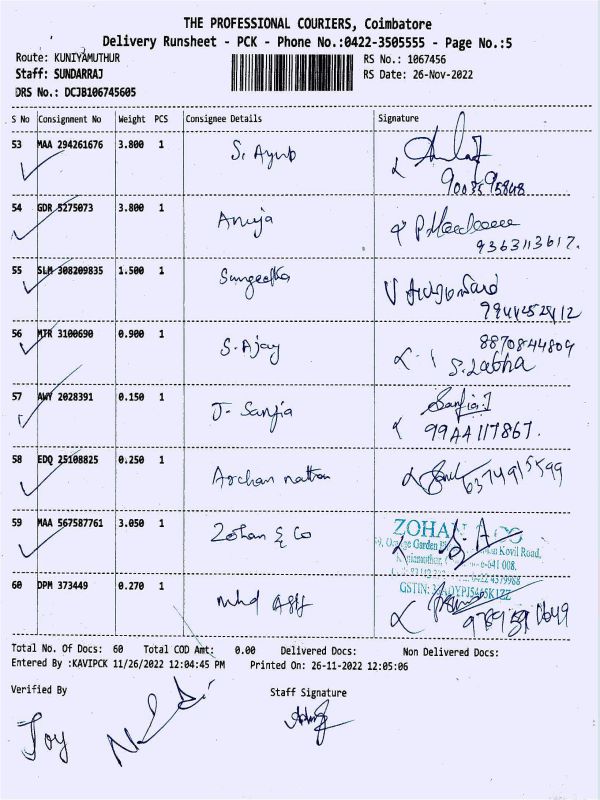 THE PROFESSIONAL COURIERS, Coimbatore
Delivery Runsheet - PCK - Phone No.:0422-3505555 - Page No.:5
Route: KUNIYAMUTHUR
RS No.: 1067456
Staff: SUNDARRAJ
RS Date: 26-Nov-2022
DRS No.: DCJB106745605
S No Consignment No Weight PCS Consignee Details Signature
53 MAA 294261676 3.800 1 S. Ayub
54 GDR 5275073 3.800 1 Anuja
9363113617.
55 SLM 308209835 1.500 1 Sangeetha
56 MTR 3100690 0.900 1 S. Ajay
8870844809
S. Labha
57 AWY 2028391 0.150 1 J- Sanjia
Sanjia.J
99AA117867.
58 EDQ 25108825 0.250 1 Archan nathan
6374915599
59 MAA 567587761 3.050 1 Zohan & Co
ZOHAN & CO
Kovil Road,
641 008.
0422 4379988
60 DPM 373449 0.270 1 Mhd
GSTIN:
Total No. Of Docs: 60 Total COD Amt: 0.00 Delivered Docs: Non Delivered Docs:
Entered By :KAVIPCK 11/26/2022 12:04:45 PM Printed On: 26-11-2022 12:05:06
Verified By Staff Signature
Joy